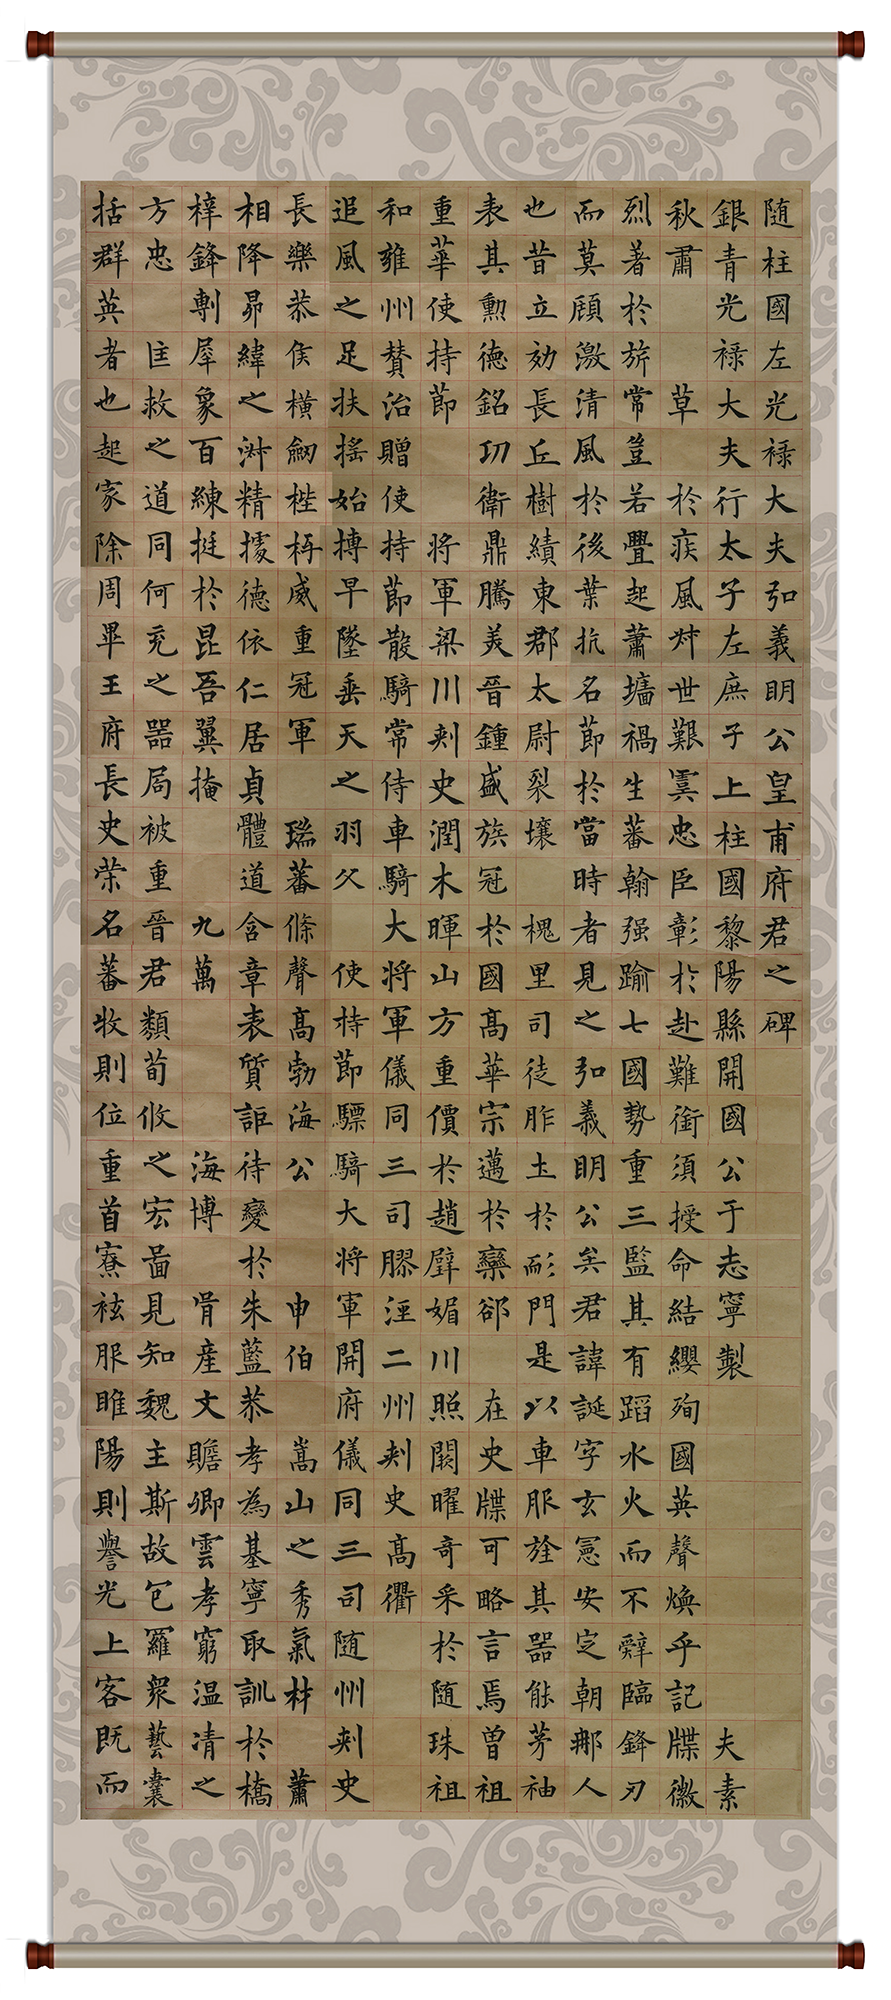 随柱國左光禄大夫弘義明公皇甫府君之碑
銀青光禄大夫行太子左庶子上柱國黎陽縣開國公于志寧製 夫素
秋肅 草 於疾風艸世艱寔忠臣彰於赴難銜須授命結纓殉國英聲煥乎記牒徽
烈著於旂常豈若舋起蕭墻禍生蕃翰强踰七國勢重三監其有蹈水火而不辭臨鋒刃
而莫顧激清風於後葉抗名節於當時者見之弘義明公矣君諱誕字玄憲安定朝那人
也昔立効長丘樹績東郡太尉裂壤 槐里司徒胙土於耏門是以車服旌其器能茅袖
表其勳德銘功衛鼎騰美晉鍾盛族冠於國高華宗邁於欒郤 在史牒可略言焉曽祖
重華使持節 将軍梁川刾史潤木暉山方重價於趙璧媚川照闕曜奇采於随珠祖
和雍州賛治贈使持節散騎常侍車騎大将軍儀同三司膠涇二州刾史高衢
追風之足扶搖始摶早墜垂天之羽父 使持節驃騎大将軍開府儀同三司随州刾史
長樂恭侯橫劒桎梏威重冠軍 瑞蕃條聲高勃海公 申伯 嵩山之秀氣材 蕭
相降昴緯之淋精據德依仁居貞體道含章表質詎待變於朱藍恭孝為基寧取訓於橋
梓鋒剸犀象百練挺於昆吾翼掩 九萬 海博 産文贍卿雲孝窮温凊之
方忠 匡救之道同何充之器局被重晉君類荀攸之宏啚見知魏主斯故包羅衆藝囊
括群英者也起家除周畢王府長史荣名蕃牧則位重首寮袨服睢陽則譽光上客既而